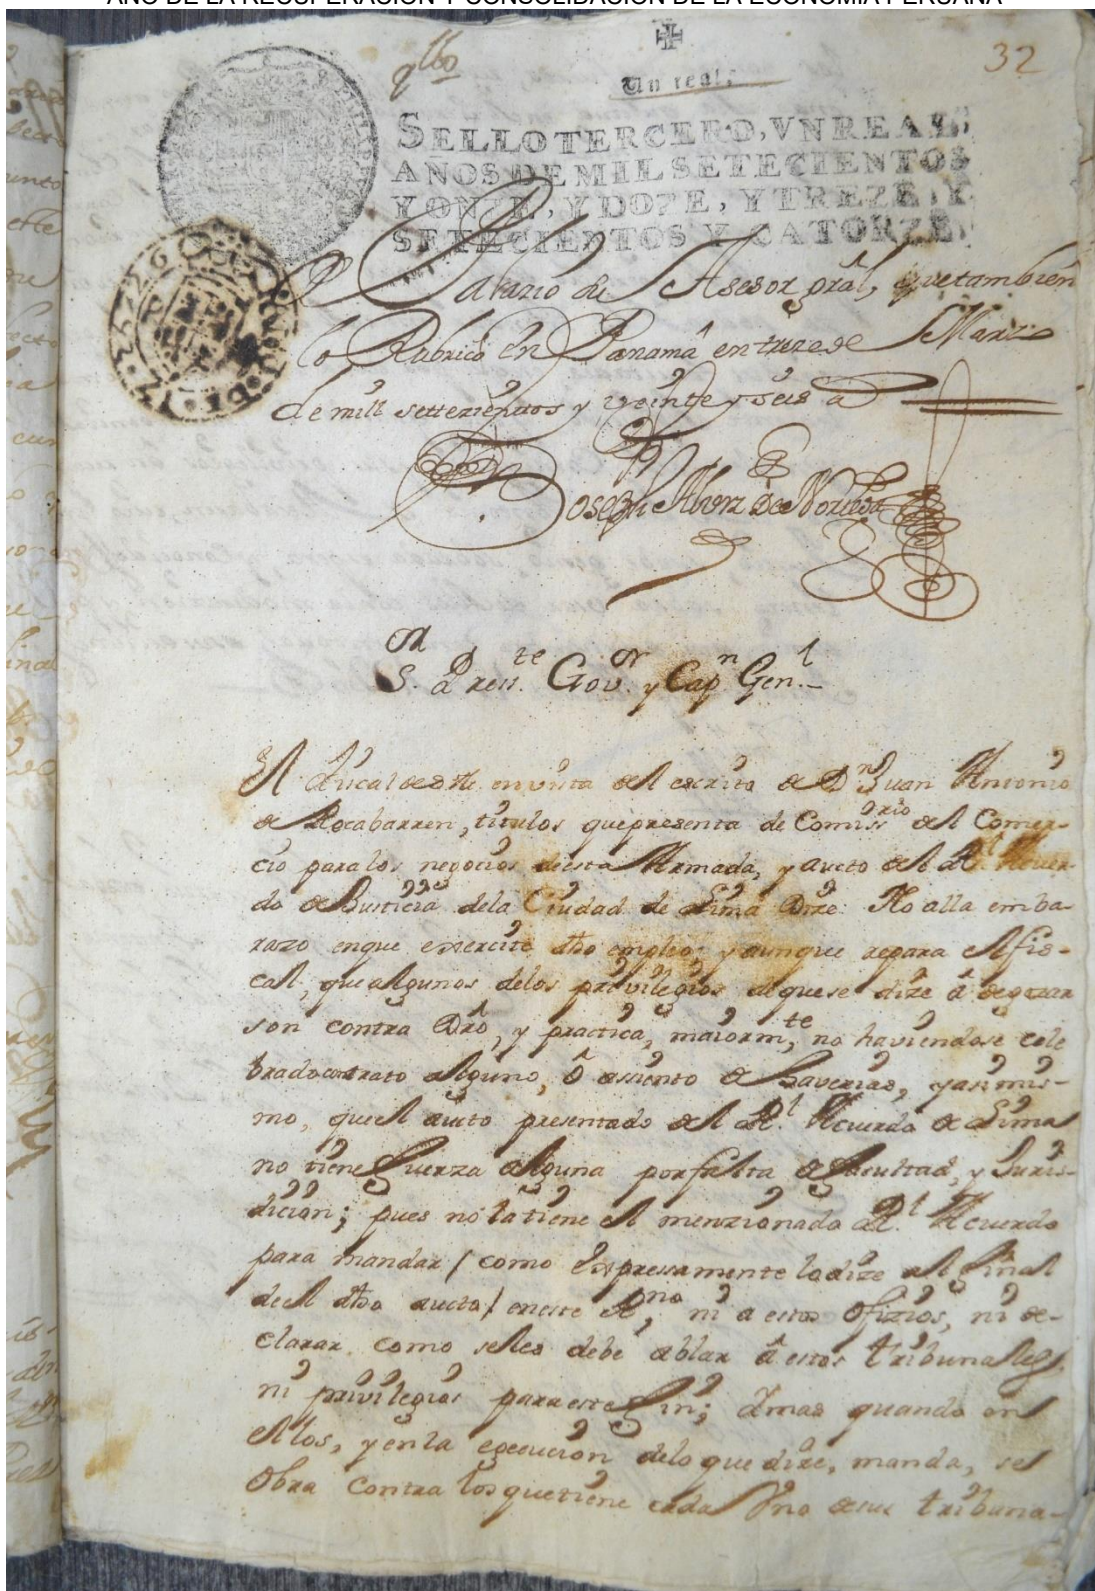 AÑO DE LA RECUPERACIÓN Y CONSOLIDACIÓN DE LA ECONOMÍA PERUANA
32
Un real.
SELLO TERCERO, VN REAL,
AÑOS DE MIL SETECIENTOS
Y ONZE, Y DOZE, Y TREZE, Y
SETECIENTOS Y CATORZE
Palazio de Asesor gral, que tambien
lo Rubricó en Panamâ en treze de Marzo
de mill settezientos y veinte y seis a
Joseph Alvrz De Noriega
S.or Press.te Gov.or y Cap.n Gen.l
El Fiscal de S M. en vista del escrito de D.n Juan Antonio
de Rocabarren, titulos que presenta de Comiss.rio del Comer-
cio para los negocios de esta Armada, y aucto del R.l Acuer-
do de Busticia dela Ciudad de Lima Dize: No alla emba-
razo en que exercite dho empleo, y aunque repara el fis-
cal, que algunos delos privilegios de que se dize â de gozar
son contra Drô, y practica, maiorm.te no haviendose cele
brado contrato alguno, ô assiento de Haverias, y asimis-
mo, que el aucto presentado del R.l Acuerdo de Lima
no tiene fuerza alguna por falta de facultad, y Juris-
dicion; pues no la tiene el menzionado R.l Acuerdo
para mandar / como expressamente lo dize al final
de el dho aucto / en este R.no, ni a estos Ofizios, ni de-
clarar como seles debe ablar â estos tribunales,
ni privilegios para este fin; Amas quando en
ellos, y en la egecucion delo que dize, manda, se
Obra contra los que tiene cada Vno de sus tribuna-